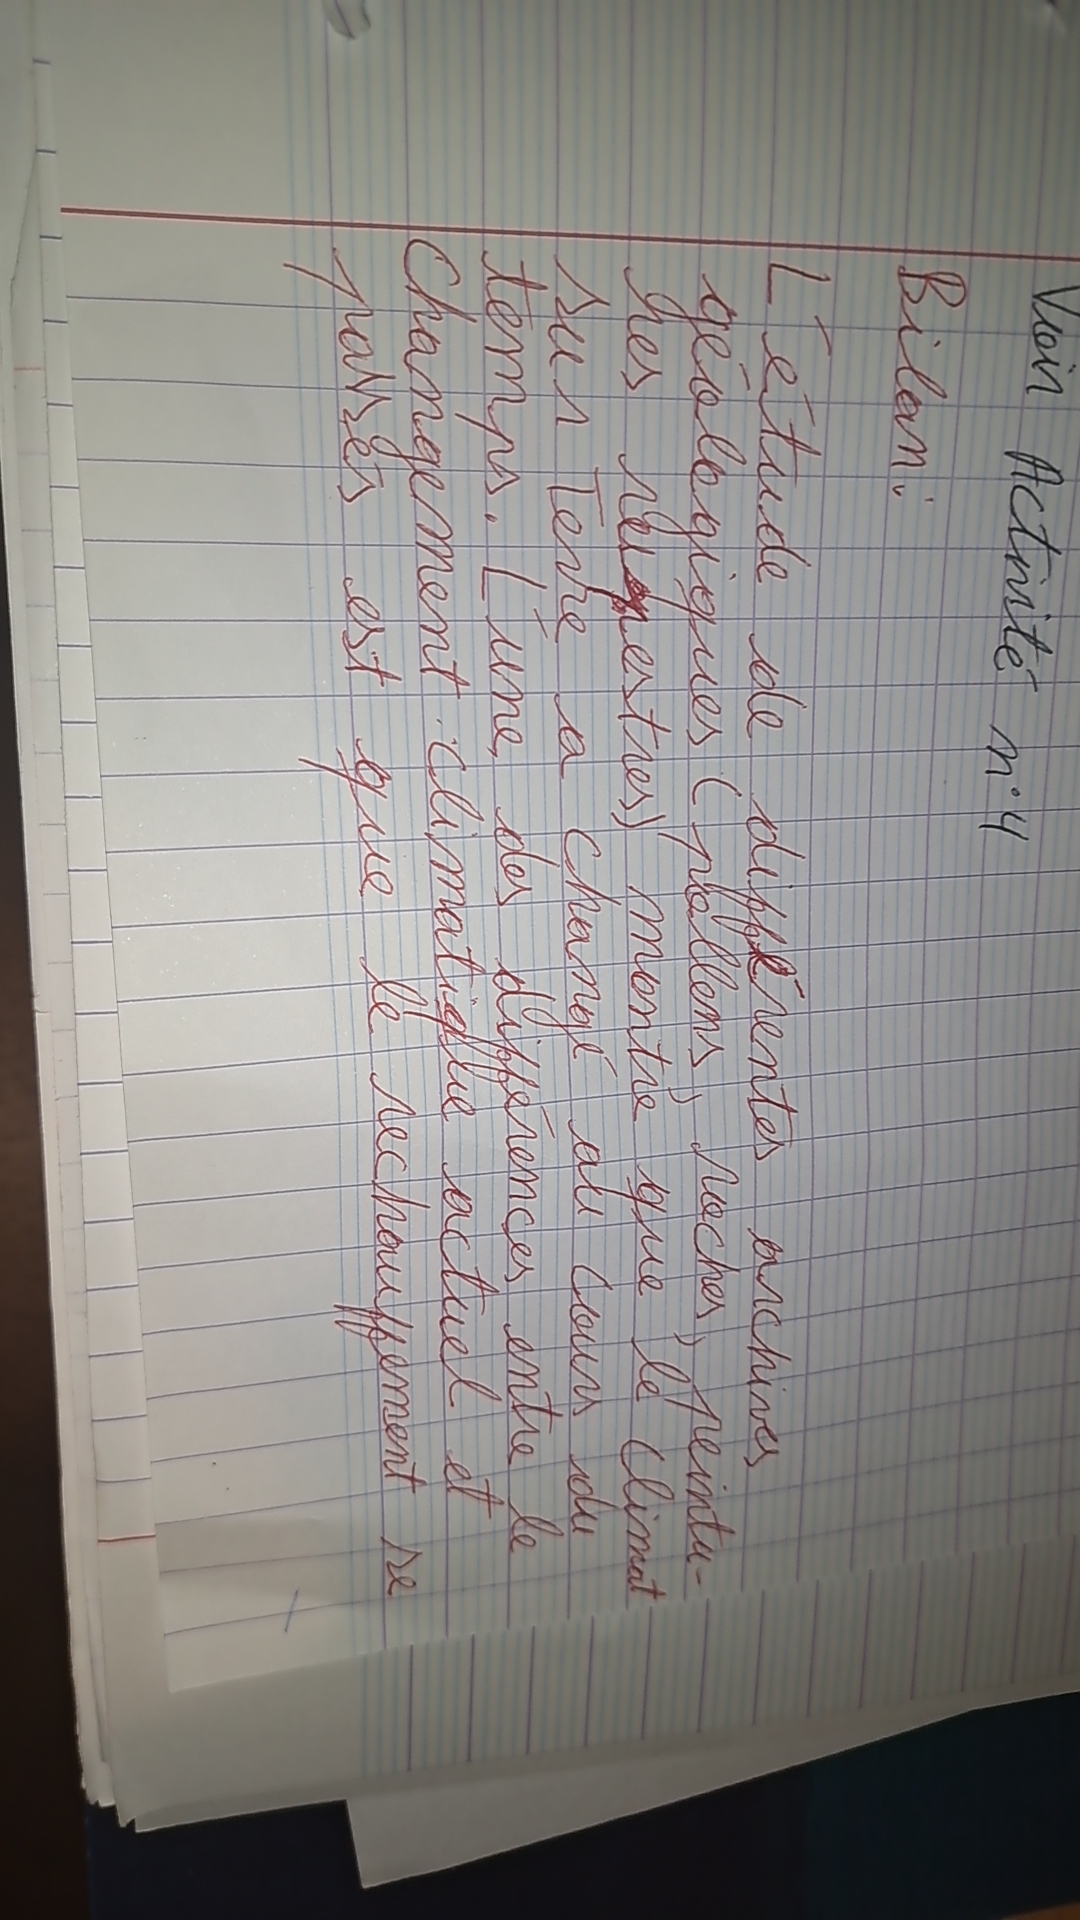 Voir Activité n°4
Bilan:
L'étude de différentes archives
géologiques (pollens, roches, peintu-
res rupestres) montre que le climat
sur Terre a changé au cours du
temps. L'une des différences entre le
Changement climatique actuel et
passés est que le rechauffement se